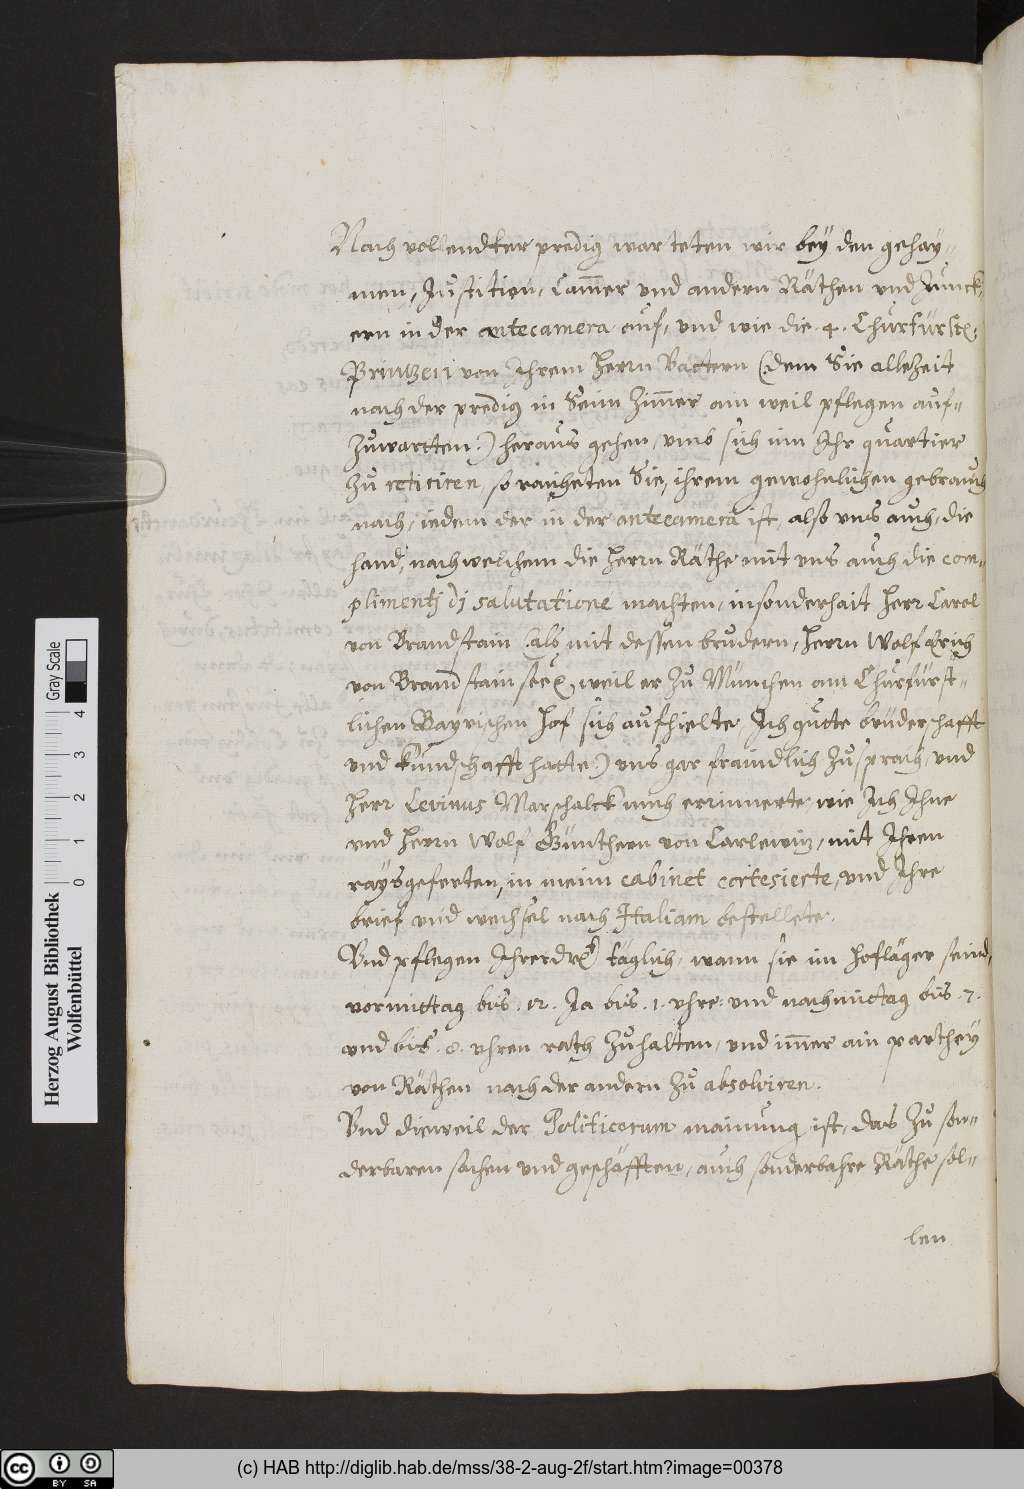 Nach vollendter predig warteten wir bey den gehay-
men, Justitien, Cam̃er vnd andern Räthen vnd Junck-
ern in der antecamera auf, vnd wie die .4. Churfürstl:
Printzen von Ihrem Herrn Vattern (:dem Sie allezeit
nach der predig in Seim Zim̃er ain weil pflegen auf-
zuwartten:) heraus gehen, vmb sich inn Ihr quartier
zu retiriren, so raicheten Sie, ihrem gewohnlichen gebrauch
nach, iedem der in der antecamera ist, also vns auch, die
hand, nach welchem die Herrn Räthe mit vns auch die com-
plimentj dj salutatione machten, insonderhait Herr Carol
von Brandstain (:als mit dessen brudern, Herrn Wolf Erich
von Brandstain seel, weil er zu München am Churfürst-
lichen Bayrischen Hof sich aufhielte, Ich gutte brüderschafft
vnd kundschafft hatte:) vns gar fraindlich zusprach, vnd
Herr Levinus Marschalck mich errinnerte, wie Ich Ihne
vnd Herrn Wolf Günthern von Carlewitz, mit Ihren
raysgeferten, in meim cabinet cortesierte, vnd Ihre
brief vnd wechsel nach Italiam bestellete.
Vnd pflegen Ihrer drl täglich, wann sie im Hofläger seind,
vormittag bis .12. Ja bis .1. vhre: vnd nachmittag bis .7.
vnd bis .8. vhren rath zuhalten, vnd im̃er ain parthey
von Räthen nach der andern zu absolviren.
Vnd dieweil der Politicorum mainung ist, das zu son-
derbaren sachen vnd geschäfften, auch sonderbahre Räthe sol-
len
Herzog August Bibliothek
Wolfenbüttel
0 1 2 3 4
Gray Scale
cc BY SA
(c) HAB http://diglib.hab.de/mss/38-2-aug-2f/start.htm?image=00378